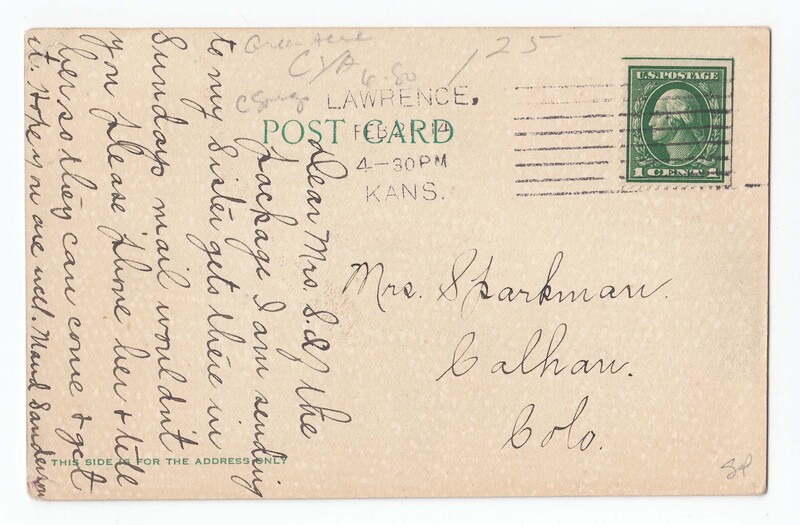 125
CYA
LAWRENCE,
POST CARD
FEB 2 14
4-30PM
KANS.
U.S. POSTAGE
1 CENT 1
Dear Mrs. S. If the
package I am sending
to my Sister gets there in
Sundays mail wouldn't
you please phone her & tell
her so they can come & get
it. Hope you are well. Maud Sanderson
Mrs. Sparkman.
Calhan.
Colo.
THIS SIDE IS FOR THE ADDRESS ONLY